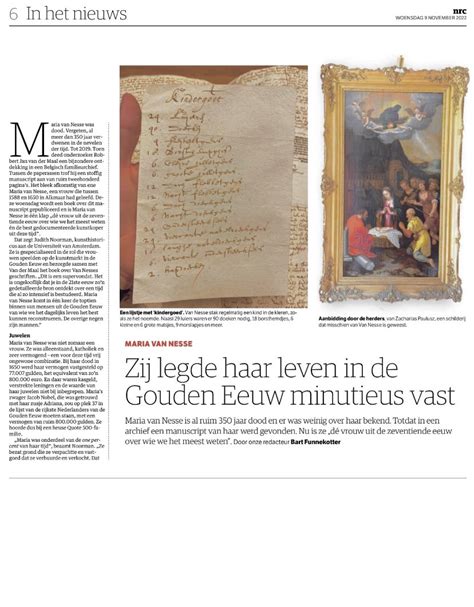 6 In het nieuws
nrc
WOENSDAG 9 NOVEMBER 2022
Maria van Nesse was
dood. Vergeten, al
meer dan 350 jaar ver-
dwenen in de nevelen
der tijd. Tot 2019. Toen
deed onderzoeker Rob-
bert Jan van der Maal een bijzondere ont-
dekking in een Belgisch familiearchief.
Tussen de paperassen trof hij een stoffig
manuscript aan van ruim tweehonderd
pagina's. Het bleek afkomstig van ene
Maria van Nesse, een vrouw die tussen
1588 en 1650 in Alkmaar had geleefd. De-
ze woensdag wordt een boek over dit ma-
nuscript gepubliceerd en is Maria van
Nesse in één klap „dé vrouw uit de zeven-
tiende eeuw over wie we het meest weten
én de best gedocumenteerde kunstkoper
uit deze tijd".
Dat zegt Judith Noorman, kunsthistori-
cus aan de Universiteit van Amsterdam.
Ze is gespecialiseerd in de rol die vrou-
wen speelden op de kunstmarkt in de
Gouden Eeuw en bezorgde samen met
Van der Maal het boek over Van Nesse
Maria
Van Nesse komt in één keer de toptien
binnen van mensen uit de Gouden Eeuw
van wie we het dagelijks leven het best
kennen. De overige negen zijn allemaal
mannen."
Juwelen
Maria van Nesse was niet zomaar een
vrouw. Ze was alleenstaand, katholiek en
zeer vermogend - een voor deze tijd vrij
ongewone combinatie. Bij haar dood in
1650 werd haar vermogen vastgesteld op
77.000 gulden, het equivalent van zo'n
800.000 euro. En daar waren kasgeld,
verstrekte leningen en de waarde van
haar juwelen niet bij inbegrepen. Maria's
zwager Jacob Nobel, die was getrouwd
met haar zusje Adriana, zou op plek 37 in
de lijst van de rijkste Nederlanders van de
Gouden Eeuw moeten staan, met een
vermogen van ruim 800.000 gulden. Ze
hoorde dus bij een heuse Quote 500-fa-
milie.
„Maria was onderdeel van de one per-
cent van haar tijd", beaamt Noorman. „Ze
bezat grond die ze verpachtte en vast-
goed dat ze verhuurde en verkocht. Dat
Kindergoet
Een lijstje met 'kindergoed'. Van Nesse stak regelmatig een kind in de kleren, zo-
als ze het noemde. Naast 29 luiers waren er 90 doeken nodig, 18 borsthemdjes, 6
kleine en 6 grote mutsjes, 9 morslapjes en meer.
Aanbidding door de herders, van Zacharias Paulusz, een schilderij
dat misschien van Van Nesse is geweest.
MARIA VAN NESSE
Zij legde haar leven in de
Gouden Eeuw minutieus vast
Maria van Nesse is al ruim 350 jaar dood en er was weinig over haar bekend. Totdat in een
archief een manuscript van haar werd gevonden. Nu is ze ‚dé vrouw uit de zeventiende eeuw
over wie we het meest weten'. Door onze redacteur Bart Funnekotter